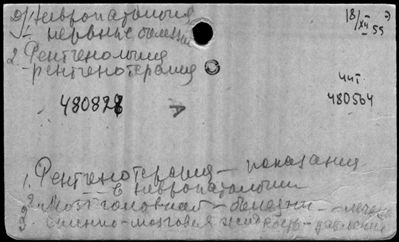 Невропатология
нервные болезни
18/XII 55
2. Рентгенология
-рентгенотерапия
480828
А
чит.
480564
1. Рентгенотерапия - показания
в невропатологии
2. Мозг головной - болезни - лечение
3 Спинно-мозговая жидкость - давление